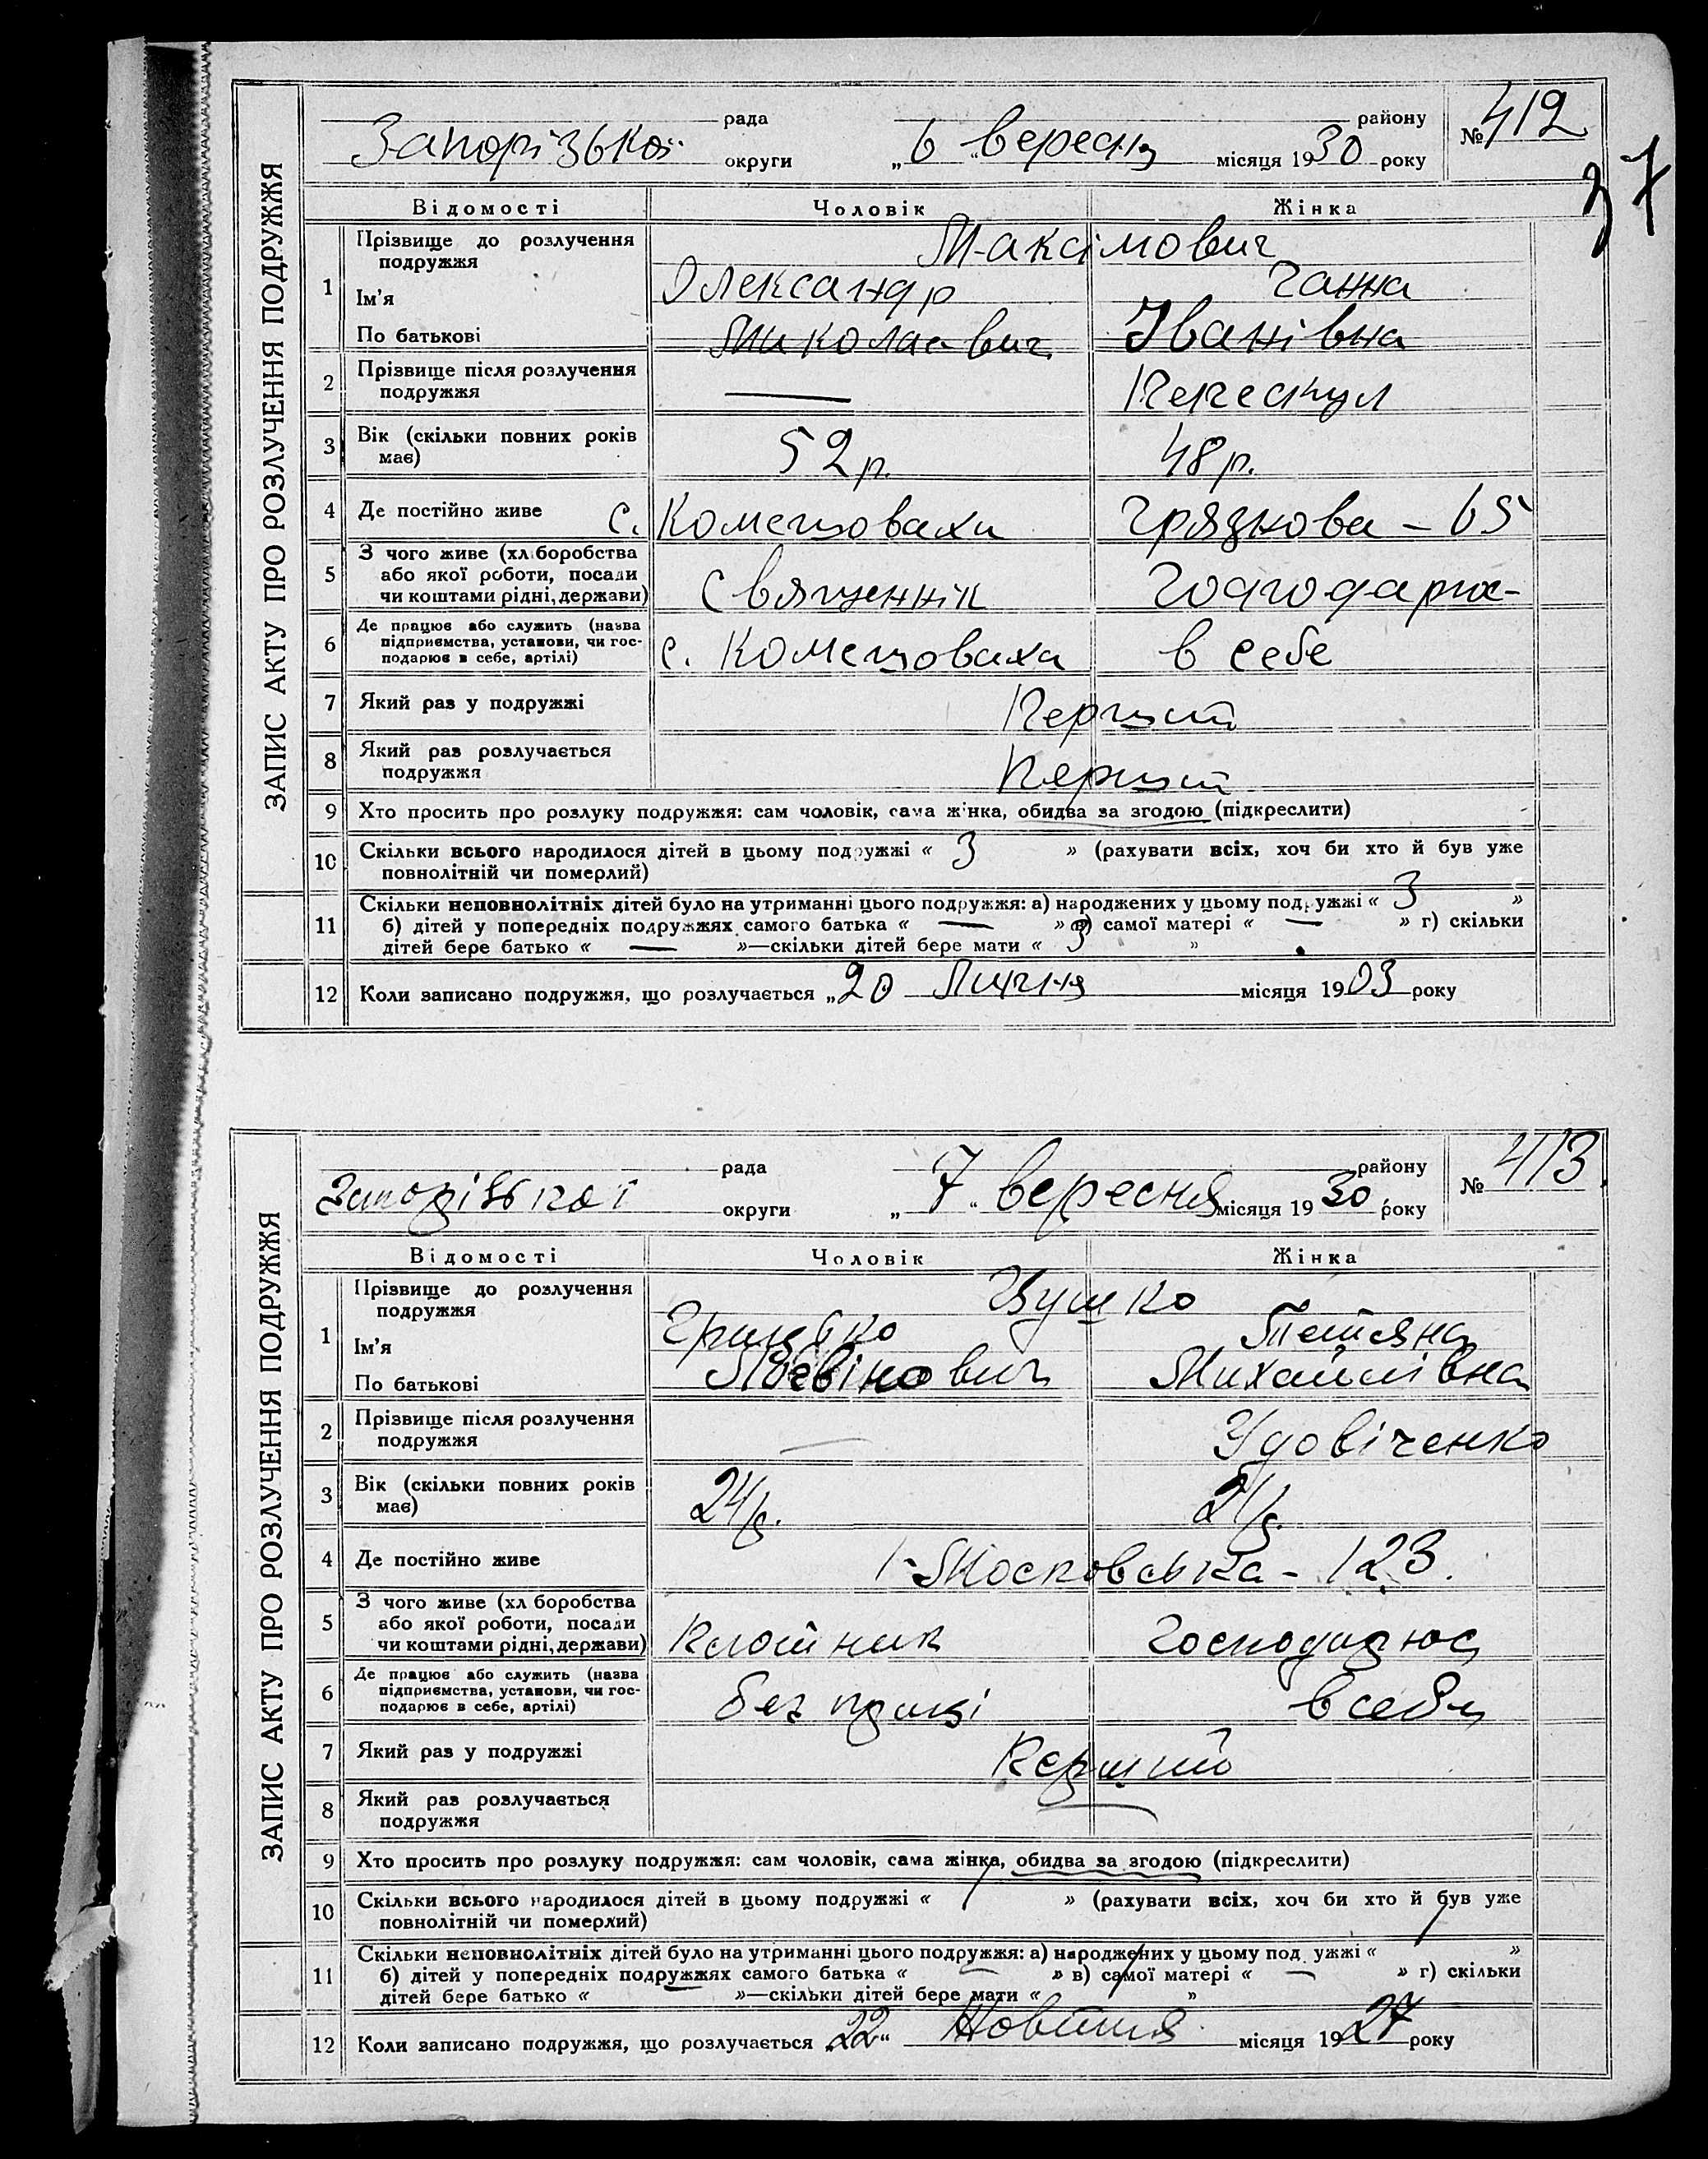 ЗАПИС АКТУ ПРО РОЗЛУЧЕННЯ ПОДРУЖЖЯ
рада району № 412
Запорізької округи „6" вересня місяця 1930 року
37
Відомості Чоловік Жінка
1 Прізвище до розлучення подружжя Максімович
Ім'я Олександр Ганна
По батькові Миколаевич Іванівна
2 Прізвище після розлучення подружжя —
3 Вік (скільки повних років має) 52 р. 48 р.
4 Де постійно живе с. Комешоваха Грязнова – 65
5 З чого живе (хліборобства
або якої роботи, посади
чи коштами рідні, держави) священнік
6 Де працює або служить (назва
підприємства, установи, чи гос-
подарює в себе, артілі) с. Комешоваха в себе
7 Який раз у подружжі Перший
8 Який раз розлучається подружжя Перший
9 Хто просить про розлуку подружжя: сам чоловік, сама жінка, обидва за згодою (підкреслити)
10 Скільки всього народилося дітей в цьому подружжі « 3 » (рахувати всіх, хоч би хто й був уже
повнолітній чи померлий)
11 Скільки неповнолітніх дітей було на утриманні цього подружжя: а) народжених у цьому подружжі « 3 »
б) дітей у попередніх подружжях самого батька « — » в) самої матері « — » г) скільки
дітей бере батько « — »—скільки дітей бере мати « 3 »
12 Коли записано подружжя, що розлучається „20 Липня місяця 1903 року
ЗАПИС АКТУ ПРО РОЗЛУЧЕННЯ ПОДРУЖЖЯ
рада району № 413
Запорізької округи „7" вересня місяця 1930 року
Відомості Чоловік Жінка
1 Прізвище до розлучення подружжя
Ім'я Грицько Тетяна
По батькові Михайлівна
2 Прізвище після розлучення подружжя — Удовіченко
3 Вік (скільки повних років має) 24 р. 21 р.
4 Де постійно живе Московська – 123.
5 З чого живе (хліборобства
або якої роботи, посади
чи коштами рідні, держави)
6 Де працює або служить (назва
підприємства, установи, чи гос-
подарює в себе, артілі) без праці в себе
7 Який раз у подружжі Перший
8 Який раз розлучається подружжя
9 Хто просить про розлуку подружжя: сам чоловік, сама жінка, обидва за згодою (підкреслити)
10 Скільки всього народилося дітей в цьому подружжі « 1 » (рахувати всіх, хоч би хто й був уже
повнолітній чи померлий)
11 Скільки неповнолітніх дітей було на утриманні цього подружжя: а) народжених у цьому подружжі « 1 »
б) дітей у попередніх подружжях самого батька « — » в) самої матері « — » г) скільки
дітей бере батько « — »—скільки дітей бере мати « 1 »
12 Коли записано подружжя, що розлучається „22" Жовтня місяця 1927 року